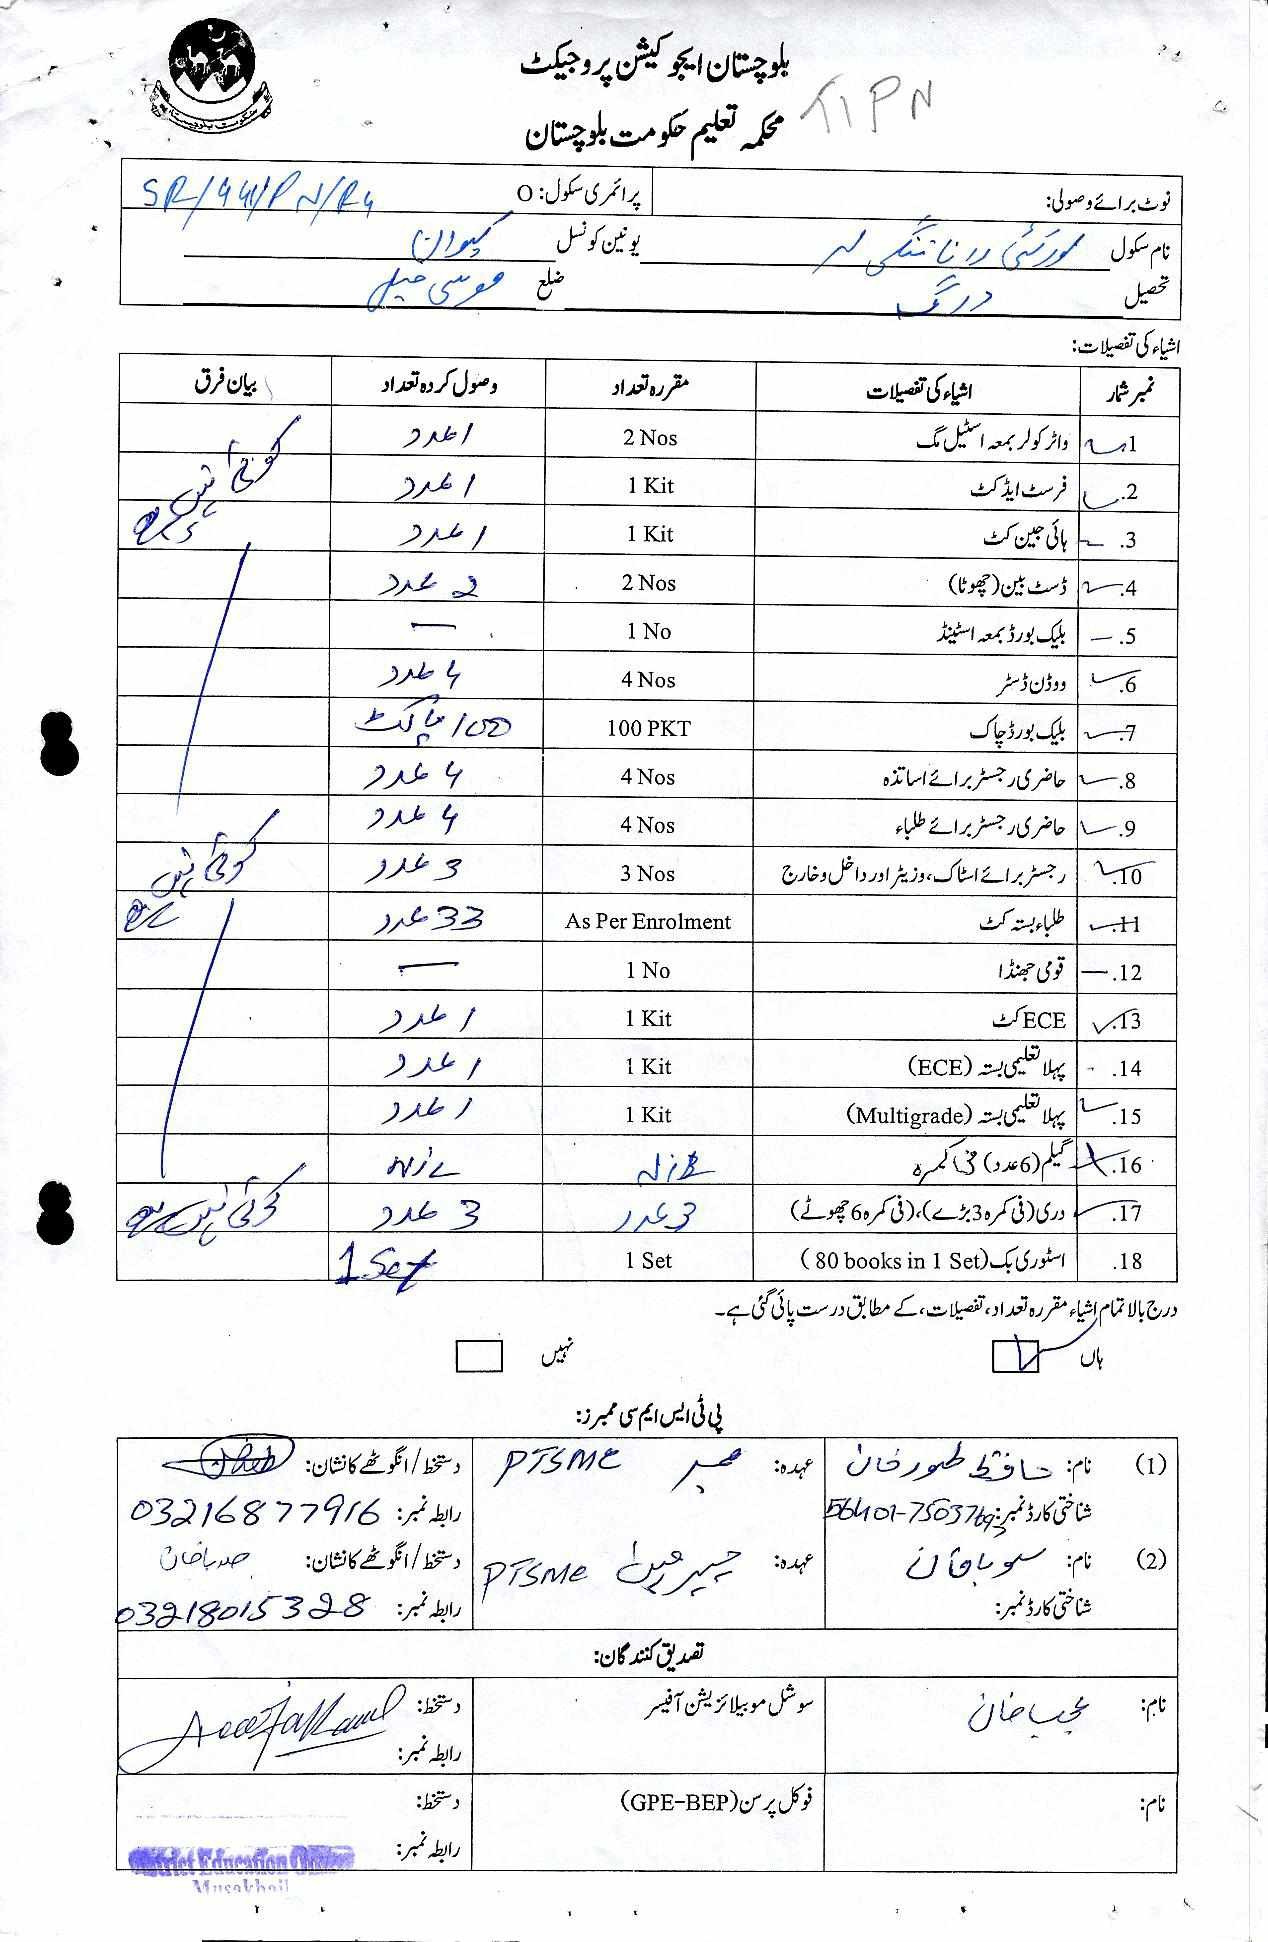 بلوچستان ایجوکیشن پروجیکٹ
TIPN
محکمہ تعلیم حکومت بلوچستان
نوٹ برائے وصولی: پرائمری سکول: O
نام سکول یونین کونسل
تحصیل درگ ضلع موسی خیل
اشیاء کی تفصیلات:
نمبر شمار اشیاء کی تفصیلات مقررہ تعداد وصول کردہ تعداد بیان فرق
1. واٹر کولر بمعہ اسٹیل مگ 2 Nos 1 عدد
2. فرسٹ ایڈ کٹ 1 Kit 1 عدد کوئی نہیں
3. ہائی جین کٹ 1 Kit 1 عدد ہے
4. ڈسٹ بین (چھوٹا) 2 Nos 2 عدد
5. بلیک بورڈ بمعہ اسٹینڈ 1 No —
6. ووڈن ڈسٹر 4 Nos 4 عدد
7. بلیک بورڈ چاک 100 PKT 100 پاکٹ
8. حاضری رجسٹر برائے اساتذہ 4 Nos 4 عدد
9. حاضری رجسٹر برائے طلباء 4 Nos 4 عدد
10. رجسٹر برائے اسٹاک، وزیٹر اور داخل و خارج 3 Nos 3 عدد کوئی نہیں
11. طلباء بستہ کٹ As Per Enrolment 33 عدد ہے
12. قومی جھنڈا 1 No —
13. ECE کٹ 1 Kit 1 عدد
14. پہلا تعلیمی بستہ (ECE) 1 Kit 1 عدد
15. پہلا تعلیمی بستہ (Multigrade) 1 Kit 1 عدد
16. گیلم (6 عدد) فی کمرہ Nil NiL
17. دری (فی کمرہ 3 بڑے)، (فی کمرہ 6 چھوٹے) 3 عدد 3 عدد کوئی نہیں ہے
18. اسٹوری بک (80 books in 1 Set) 1 Set 1 Set
درج بالا تمام اشیاء مقررہ تعداد، تفصیلات، کے مطابق درست پائی گئی ہے۔
ہاں نہیں
پی ٹی ایس ایم سی ممبرز:
(1) نام: حافظ ظہور خان عہدہ: ممبر PTSMC دستخط/انگوٹھے کا نشان:
شناختی کارڈ نمبر: رابطہ نمبر: 03216877916
(2) نام: عہدہ: چیرمین PTSMC دستخط/انگوٹھے کا نشان:
شناختی کارڈ نمبر: رابطہ نمبر: 03218015328
تصدیق کنندگان:
نام: سوشل موبیلائزیشن آفیسر دستخط:
رابطہ نمبر:
نام: فوکل پرسن (GPE-BEP) دستخط:
رابطہ نمبر:
District Education Officer
Musakhail